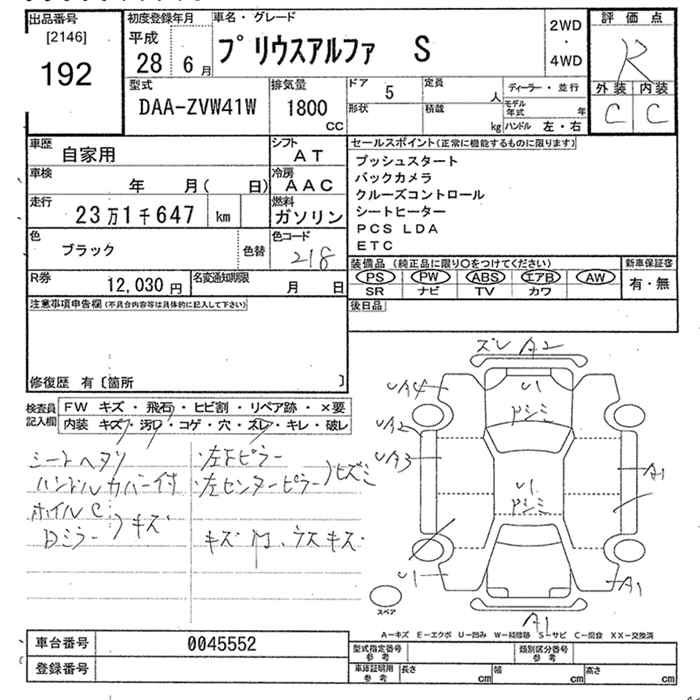 出品番号
[2146]
192
初度登録年月
平成
28 6月
車名・グレード
プリウスアルファ S
2WD
・
4WD
評価点
R
外装 内装
C C
型式
DAA-ZVW41W
排気量
1800
CC
ドア 5
形状
定員 人
積載 kg
ディーラー・並行
モデル年式 年
ハンドル 左・右
車歴 自家用
シフト AT
車検 年 月( 日)
冷房 AAC
走行 23万1千647 km
燃料 ガソリン
色 ブラック
色替
色コード 218
R券 12,030円
名変通知期限 月 日
セールスポイント(正常に機能するものに限ります)
プッシュスタート
バックカメラ
クルーズコントロール
シートヒーター
PCS LDA
ETC
装備品 (純正品に限り○をつけてください)
新車保証書
PS PW ABS エアB AW
SR ナビ TV カワ
有・無
後日品
注意事項申告欄(不具合内容等は具体的に記入して下さい)
修復歴 有〔箇所 〕
検査員記入欄
FW キズ・飛石・ヒビ割・リペア跡・×要
内装 キズ・汚レ・コゲ・穴・ズレ・キレ・破レ
シートヘタリ
ハンドルカバー付
ホイルC
Dミラー 〉キズ
左Fピラー
左センターピラー 〉ヒズミ
キズ 、ウスキズ
ズレ A2
UA4
U1
ドシミ
UA2
UA3
A1
U1
ドシミ
U1
A1
A1
スペア
A-キズ E-エクボ U-凹み W-補修跡 S-サビ C-腐食 XX-交換済
車台番号 0045552
登録番号
型式指定番号 参考
類別区分番号 参考
車庫証明用 参考
長さ cm 幅 cm 高さ cm